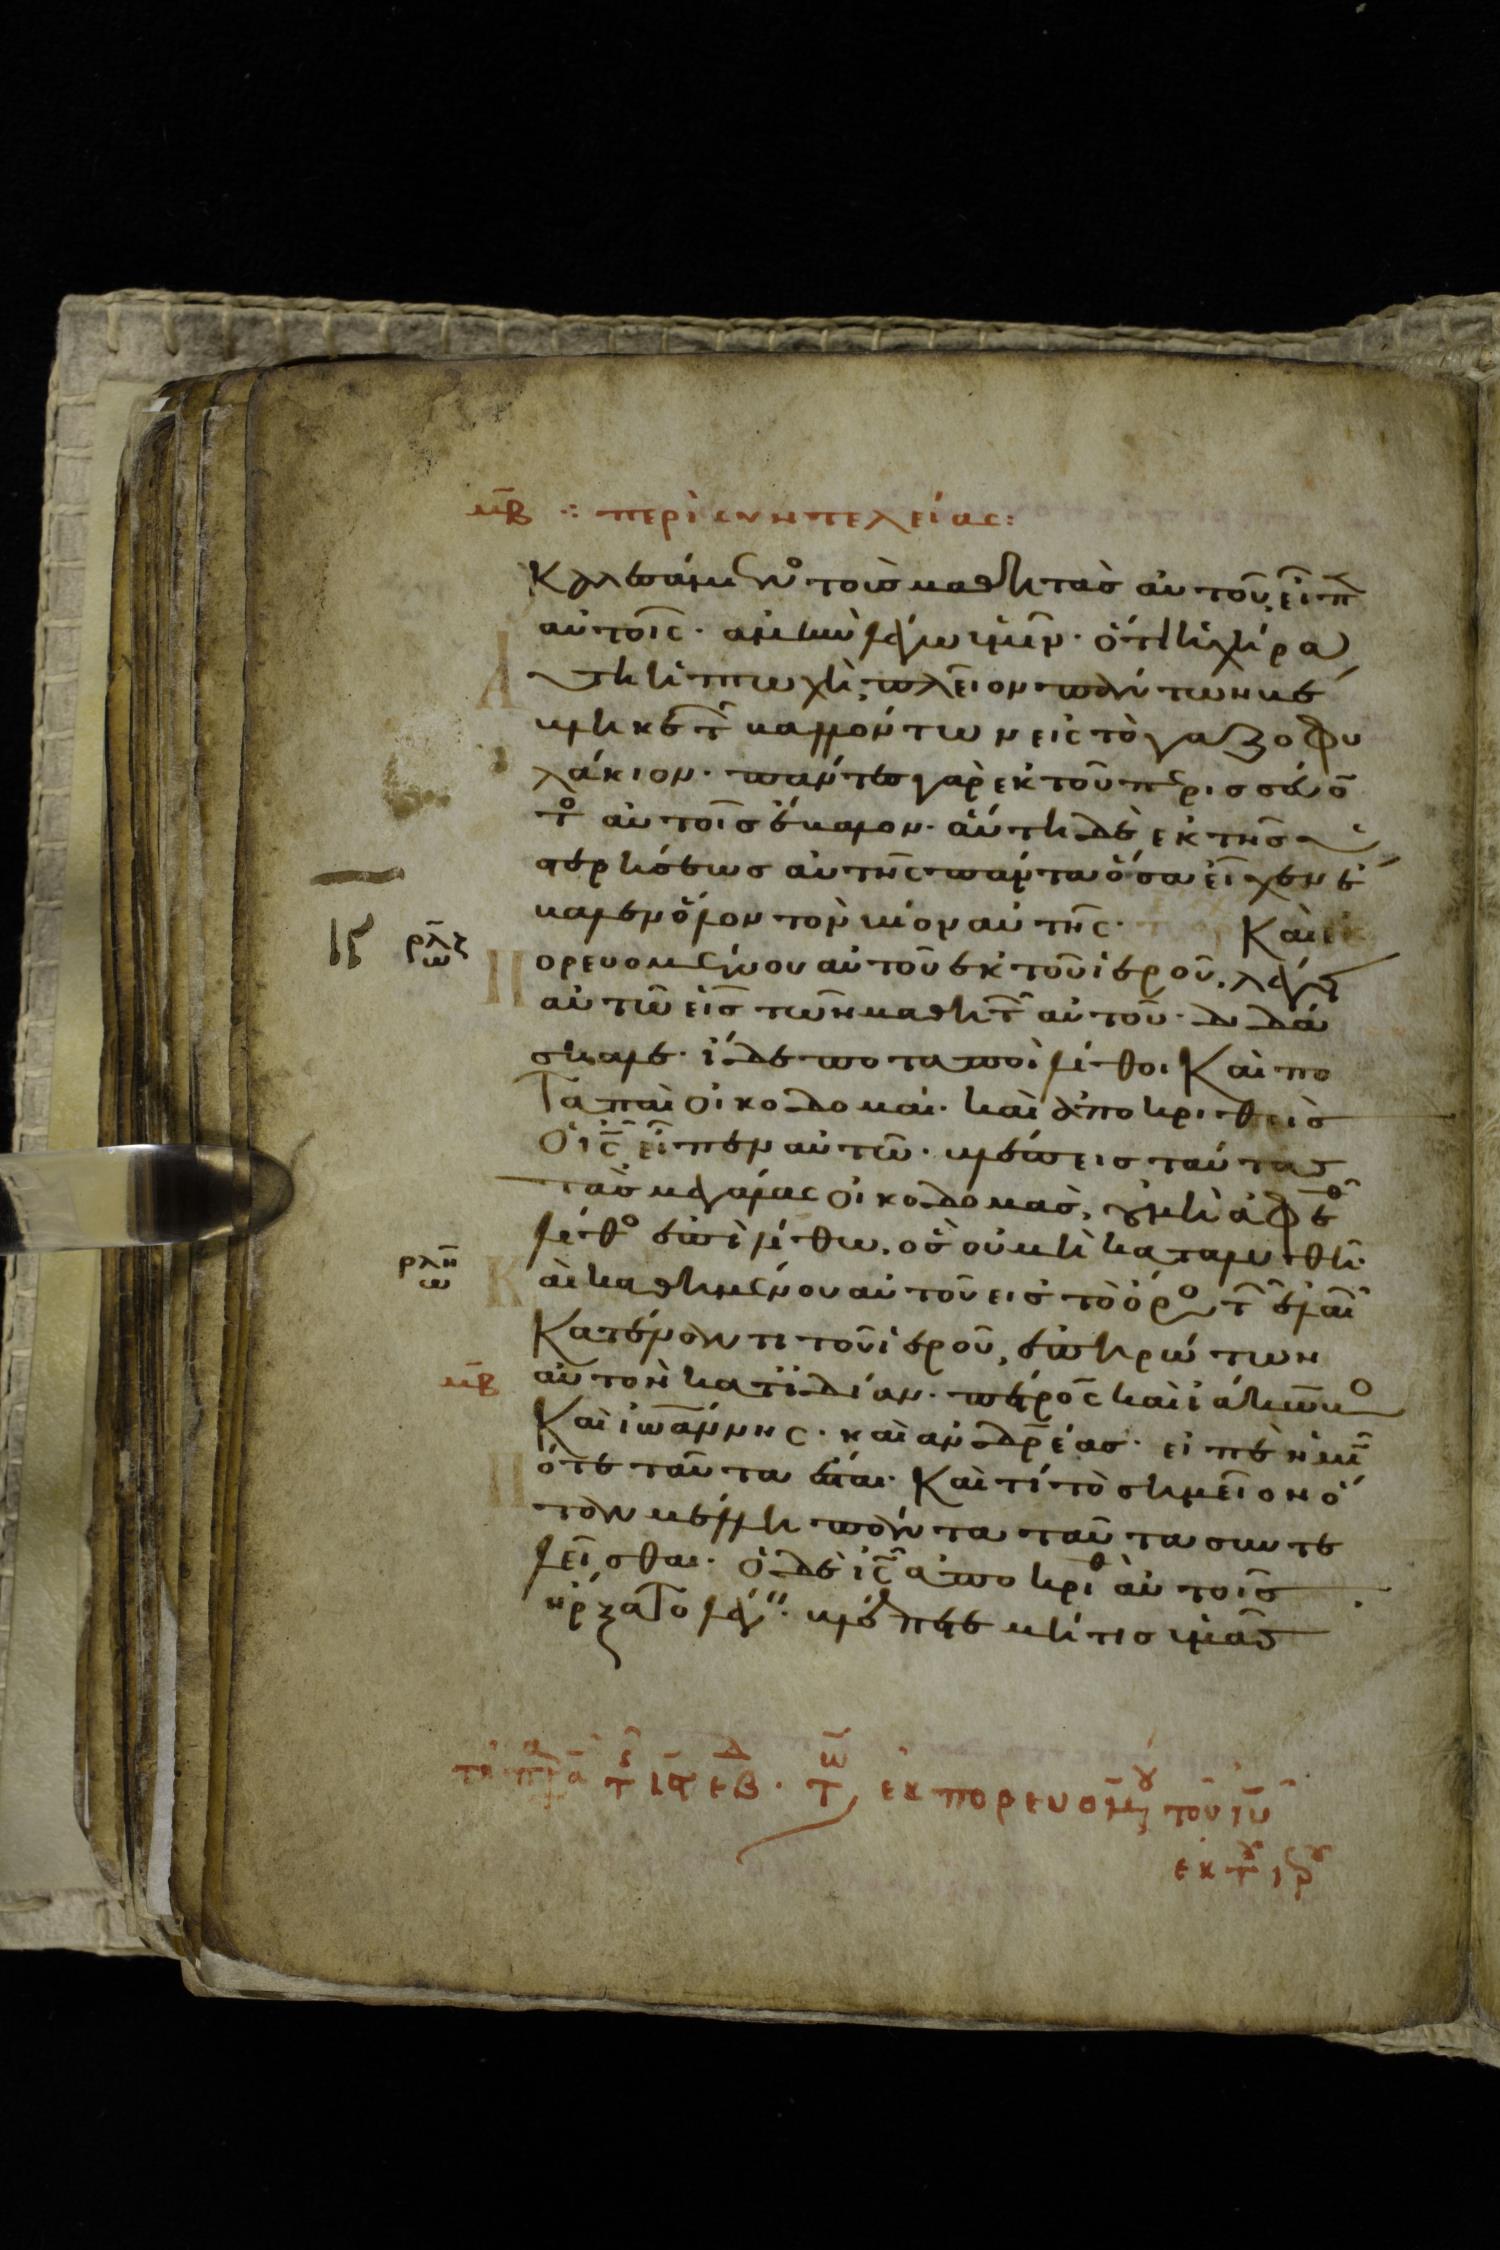 μβ ⁘ περὶ συντελείας:
Καλεσάμενος τοὺς μαθητὰς αὐτοῦ, εἶπ
αὐτοῖς· ἀμὴν λέγω ὑμῖν· ὅτι ἡ χήρα
αὕτη ἡ πτωχὴ, πλεῖον πάντων βέ
βληκε τῶν βαλλόντων εἰς τὸ γαζοφυ
λάκιον· πάντες γὰρ ἐκ τοῦ περισσεύον
τος αὐτοῖς ἔβαλον· αὕτη δὲ ἐκ τῆς ὑ
στερήσεως αὐτῆς πάντα ὅσα εἶχεν ἔ
βαλεν ὅλον τὸν βίον αὐτῆς· Καὶ ἐκ
ρλζ πορευομένου αὐτοῦ ἐκ τοῦ ἱεροῦ, λέγει
αὐτῶ εἷς τῶν μαθητῶν αὐτοῦ· διδά
σκαλε· ἴδε ποταποὶ λίθοι Καὶ πο
ταπαὶ οἰκοδομαί· καὶ ἀποκριθεὶς
ὁ ις εἶπεν αὐτῶ· βλέπεις ταύτας
τὰς μεγάλας οἰκοδομάς, οὐ μὴ ἀφεθῆ
λίθος ἐπὶ λίθω, ὃς οὐ μὴ καταλυθῆ·
ρλη Καὶ καθημένου αὐτοῦ εἰς τὸ ὄρος τῶν ἐλαιῶν
Κατέναντι τοῦ ἱεροῦ, ἐπηρώτων
μβ αὐτὸν κατ ἰδίαν· πέτρος καὶ ἰάκωβος
Καὶ ἰωάννης· καὶ ἀνδρέας· εἰπὲ ἡμῖν
πότε ταῦτα ἔσται· Καὶ τί τὸ σημεῖον ὅ
ταν μέλλη πάντα ταῦτα συντε
λεῖσθαι· ὁ δὲ ις ἀποκριθεὶς αὐτοῖς
ἤρξατο λέγειν· βλέπετε μή τις ὑμᾶς
ἐκπορευομένου τοῦ ιυ
ἐκ τοῦ ἱεροῦ